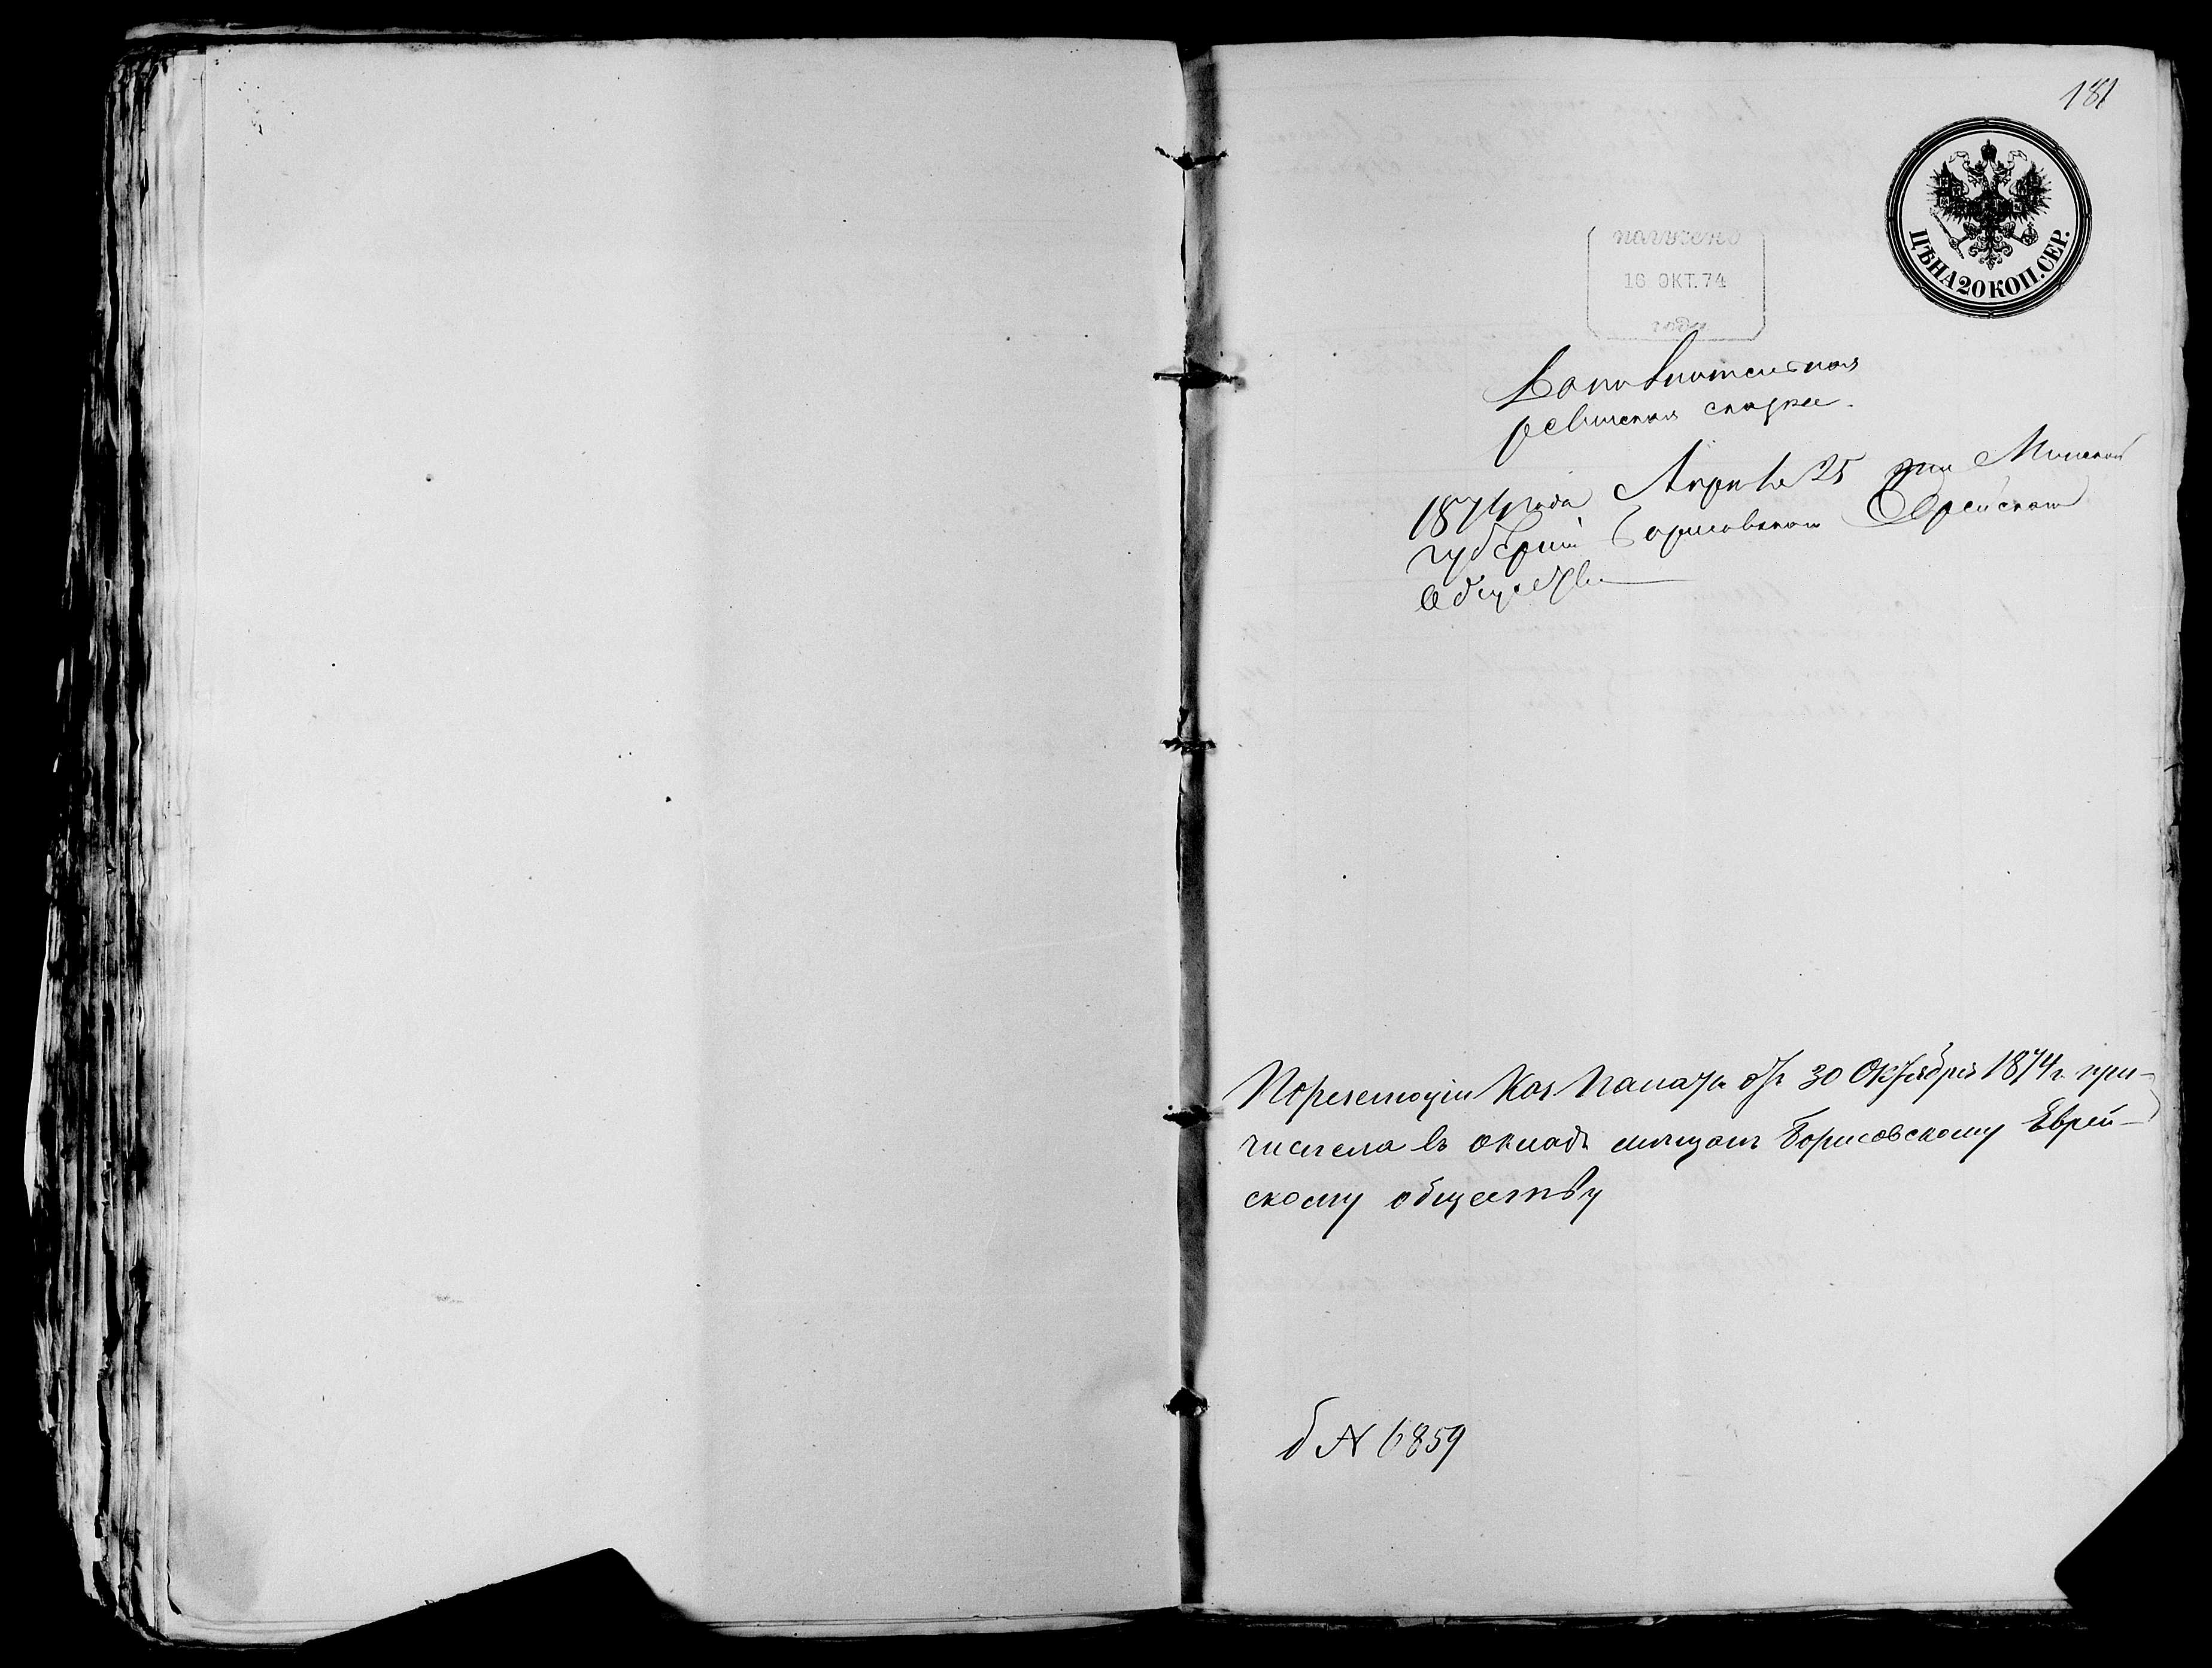 181
ЦѢНА 20 КОП. СЕР.
получено
16 ОКТ. 74
года
Дополнительная
ревизская сказка.
1874 года Апреля 25 дня Минской
губернии Борисовского Еврейского
Общества
По резолюции Каз. Палаты отъ 30 Октября 1874 г. при-
числена въ окладъ мещанъ Борисовскому Еврей-
скому обществу
б № 6859